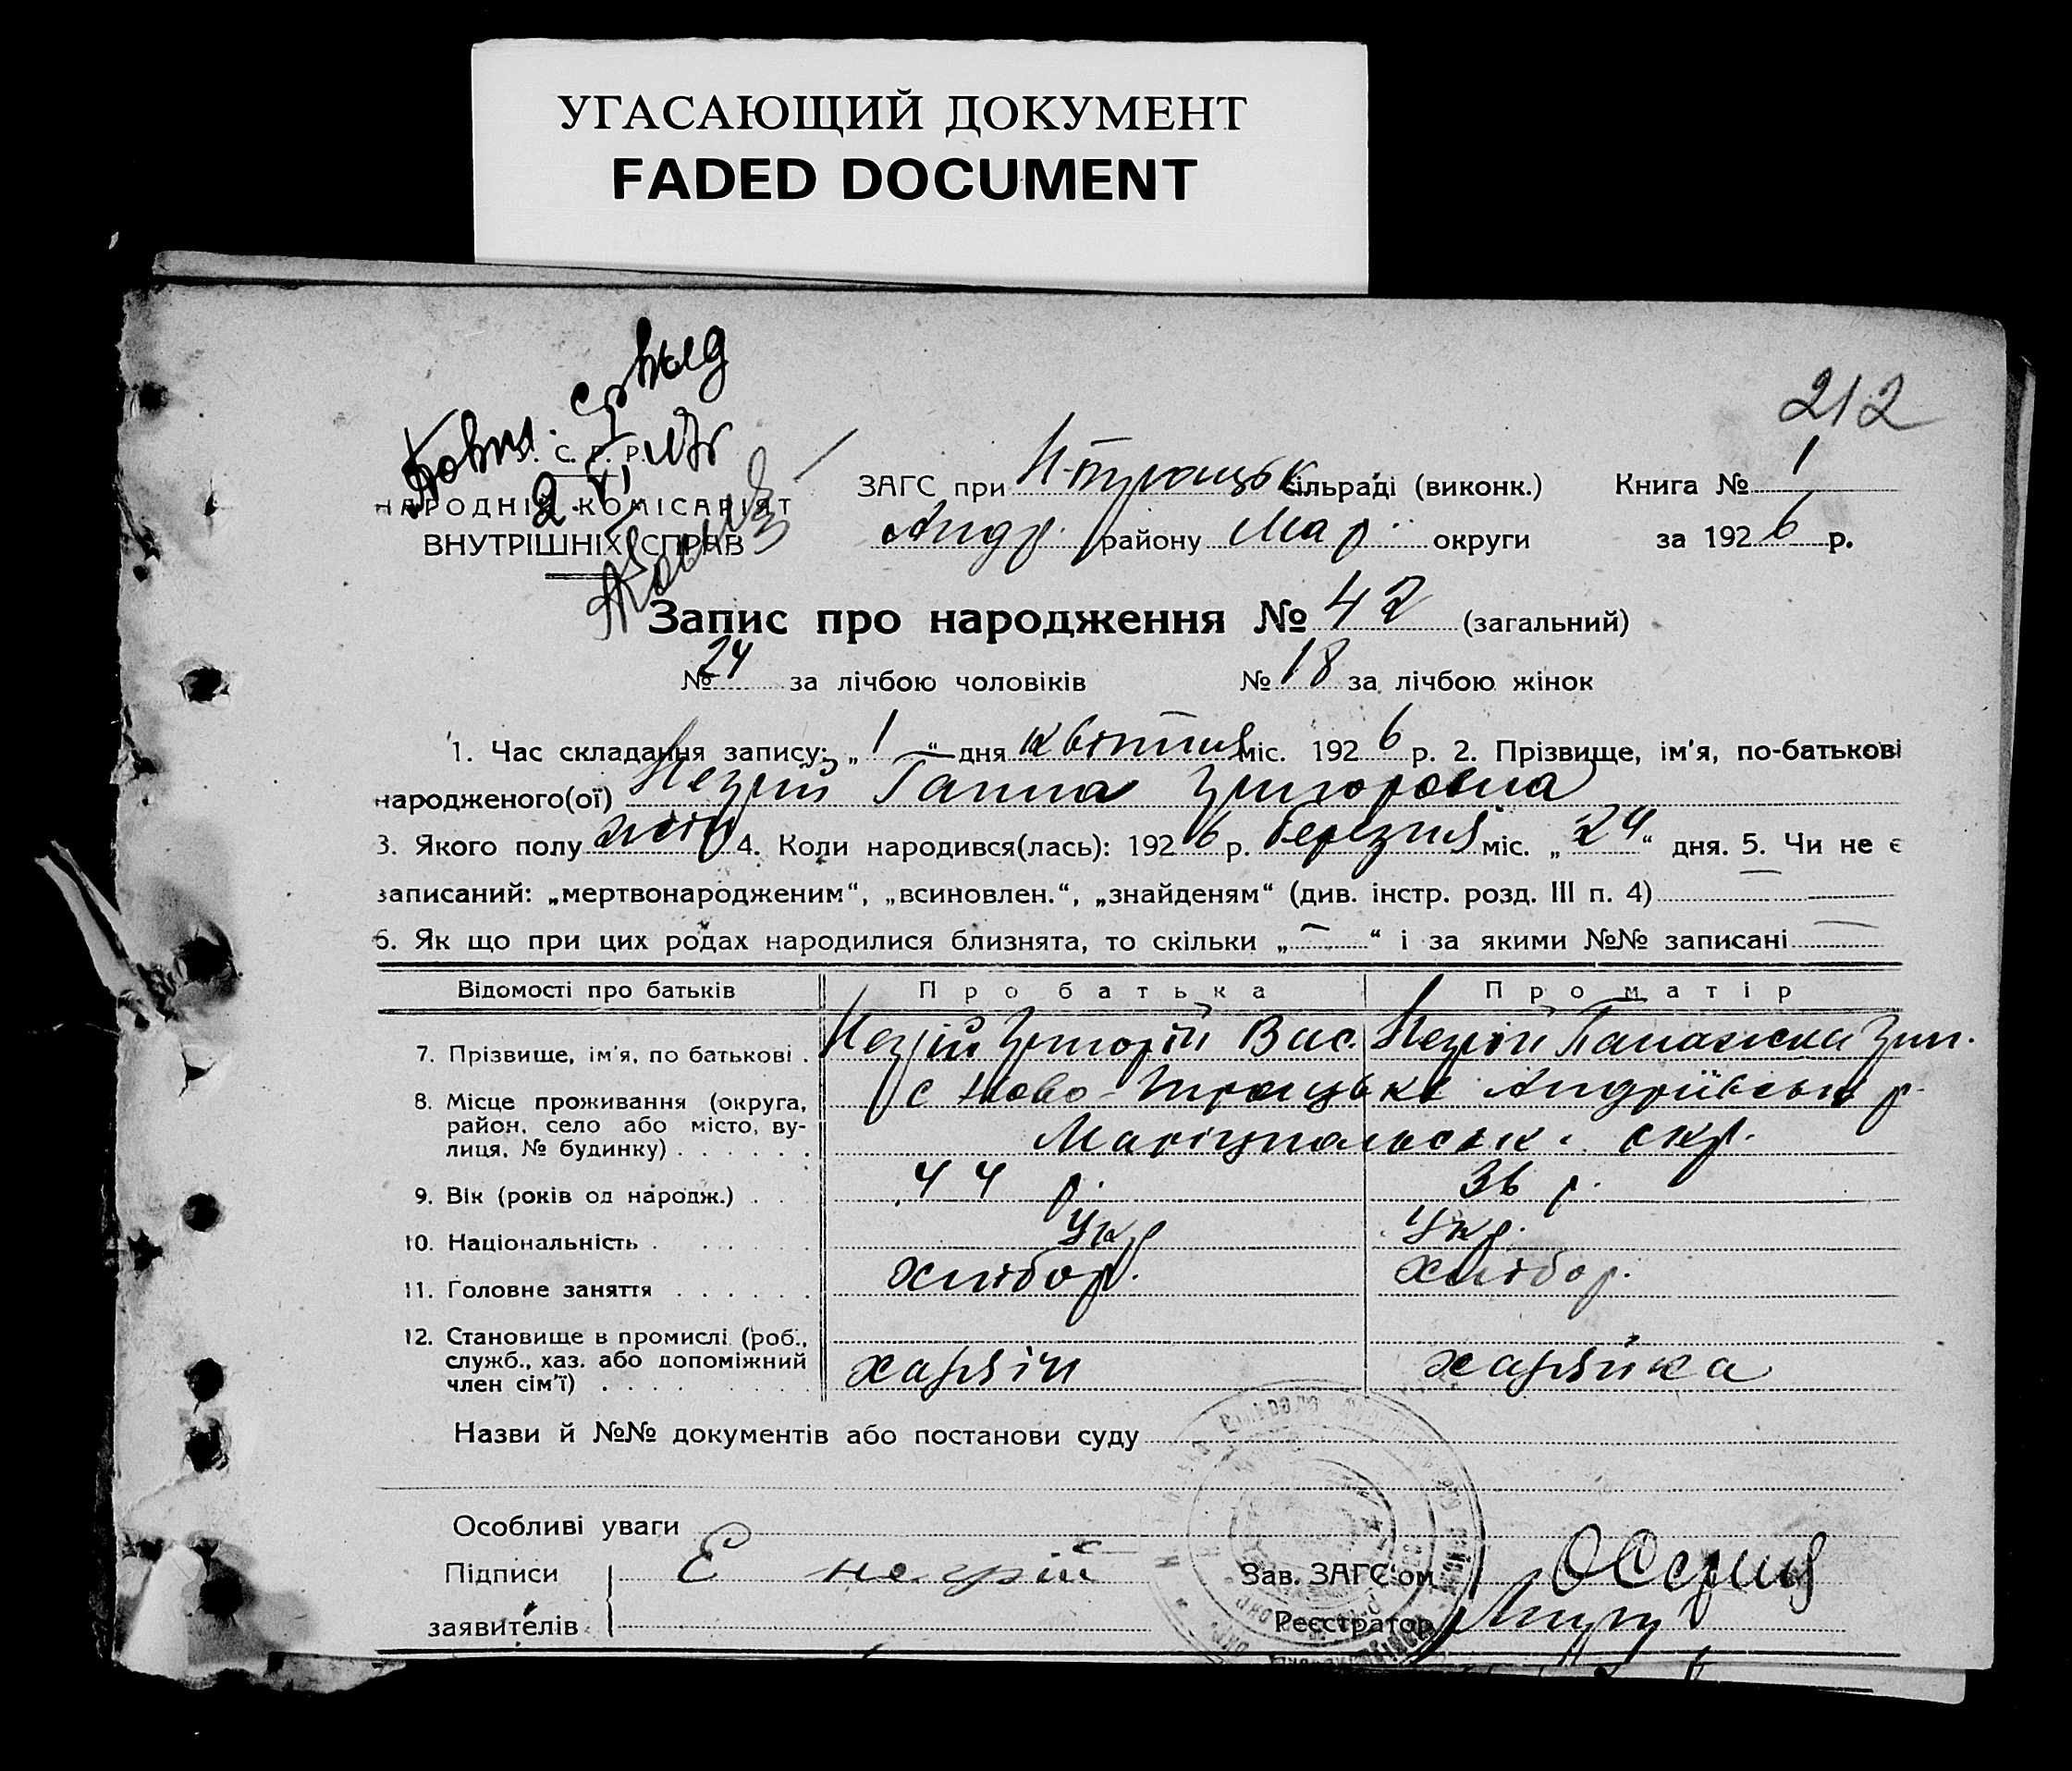 УГАСАЮЩИЙ ДОКУМЕНТ
FADED DOCUMENT
212
У. С. Р. Р.
НАРОДНІЙ КОМІСАРІЯТ
ВНУТРІШНІХ СПРАВ
ЗАГС при Н-Троицьк сільраді (виконк.) Книга № 1
Андр. району Мар. округи за 1926 р.
Запис про народження № 42 (загальний)
№ 24 за лічбою чоловіків № 18 за лічбою жінок
1. Час складання запису: „1“ дня квітня міс. 1926 р. 2. Прізвище, ім'я, по-батькові
народженого(ої) Негрій Ганна Григоровна
3. Якого полу жін 4. Коли народився(лась): 1926 р. березня міс. „24“ дня. 5. Чи не є
записаний: „мертвонародженим“, „всиновлен.“, „знайденям“ (див. інстр. розд. III п. 4) —
6. Як що при цих родах народилися близнята, то скільки „—“ і за якими №№ записані —
Відомості про батьків Про батька Про матір
7. Прізвище, ім'я, по батькові . Негрій Григорій Вас. Негрій Григ.
8. Місце проживання (округа, район, село або місто, вулиця, № будинку) . . . . . . с Ново-Троицьке Андріївськ р.
Маріупольськ. окр.
9. Вік (років од народж.) . . 44 р. 36 р.
10. Національність . . . . . Укр Укр.
11. Головне заняття . . . . . . хлібор. хлібор.
12. Становище в промислі (роб.,
служб., хаз. або допоміжний
член сім'ї) . . . . . . . . . хазяїн хазяйка
Назви й №№ документів або постанови суду
Особливі уваги
Підписи Е негрій Зав. ЗАГС'ом
заявителів Реєстратор